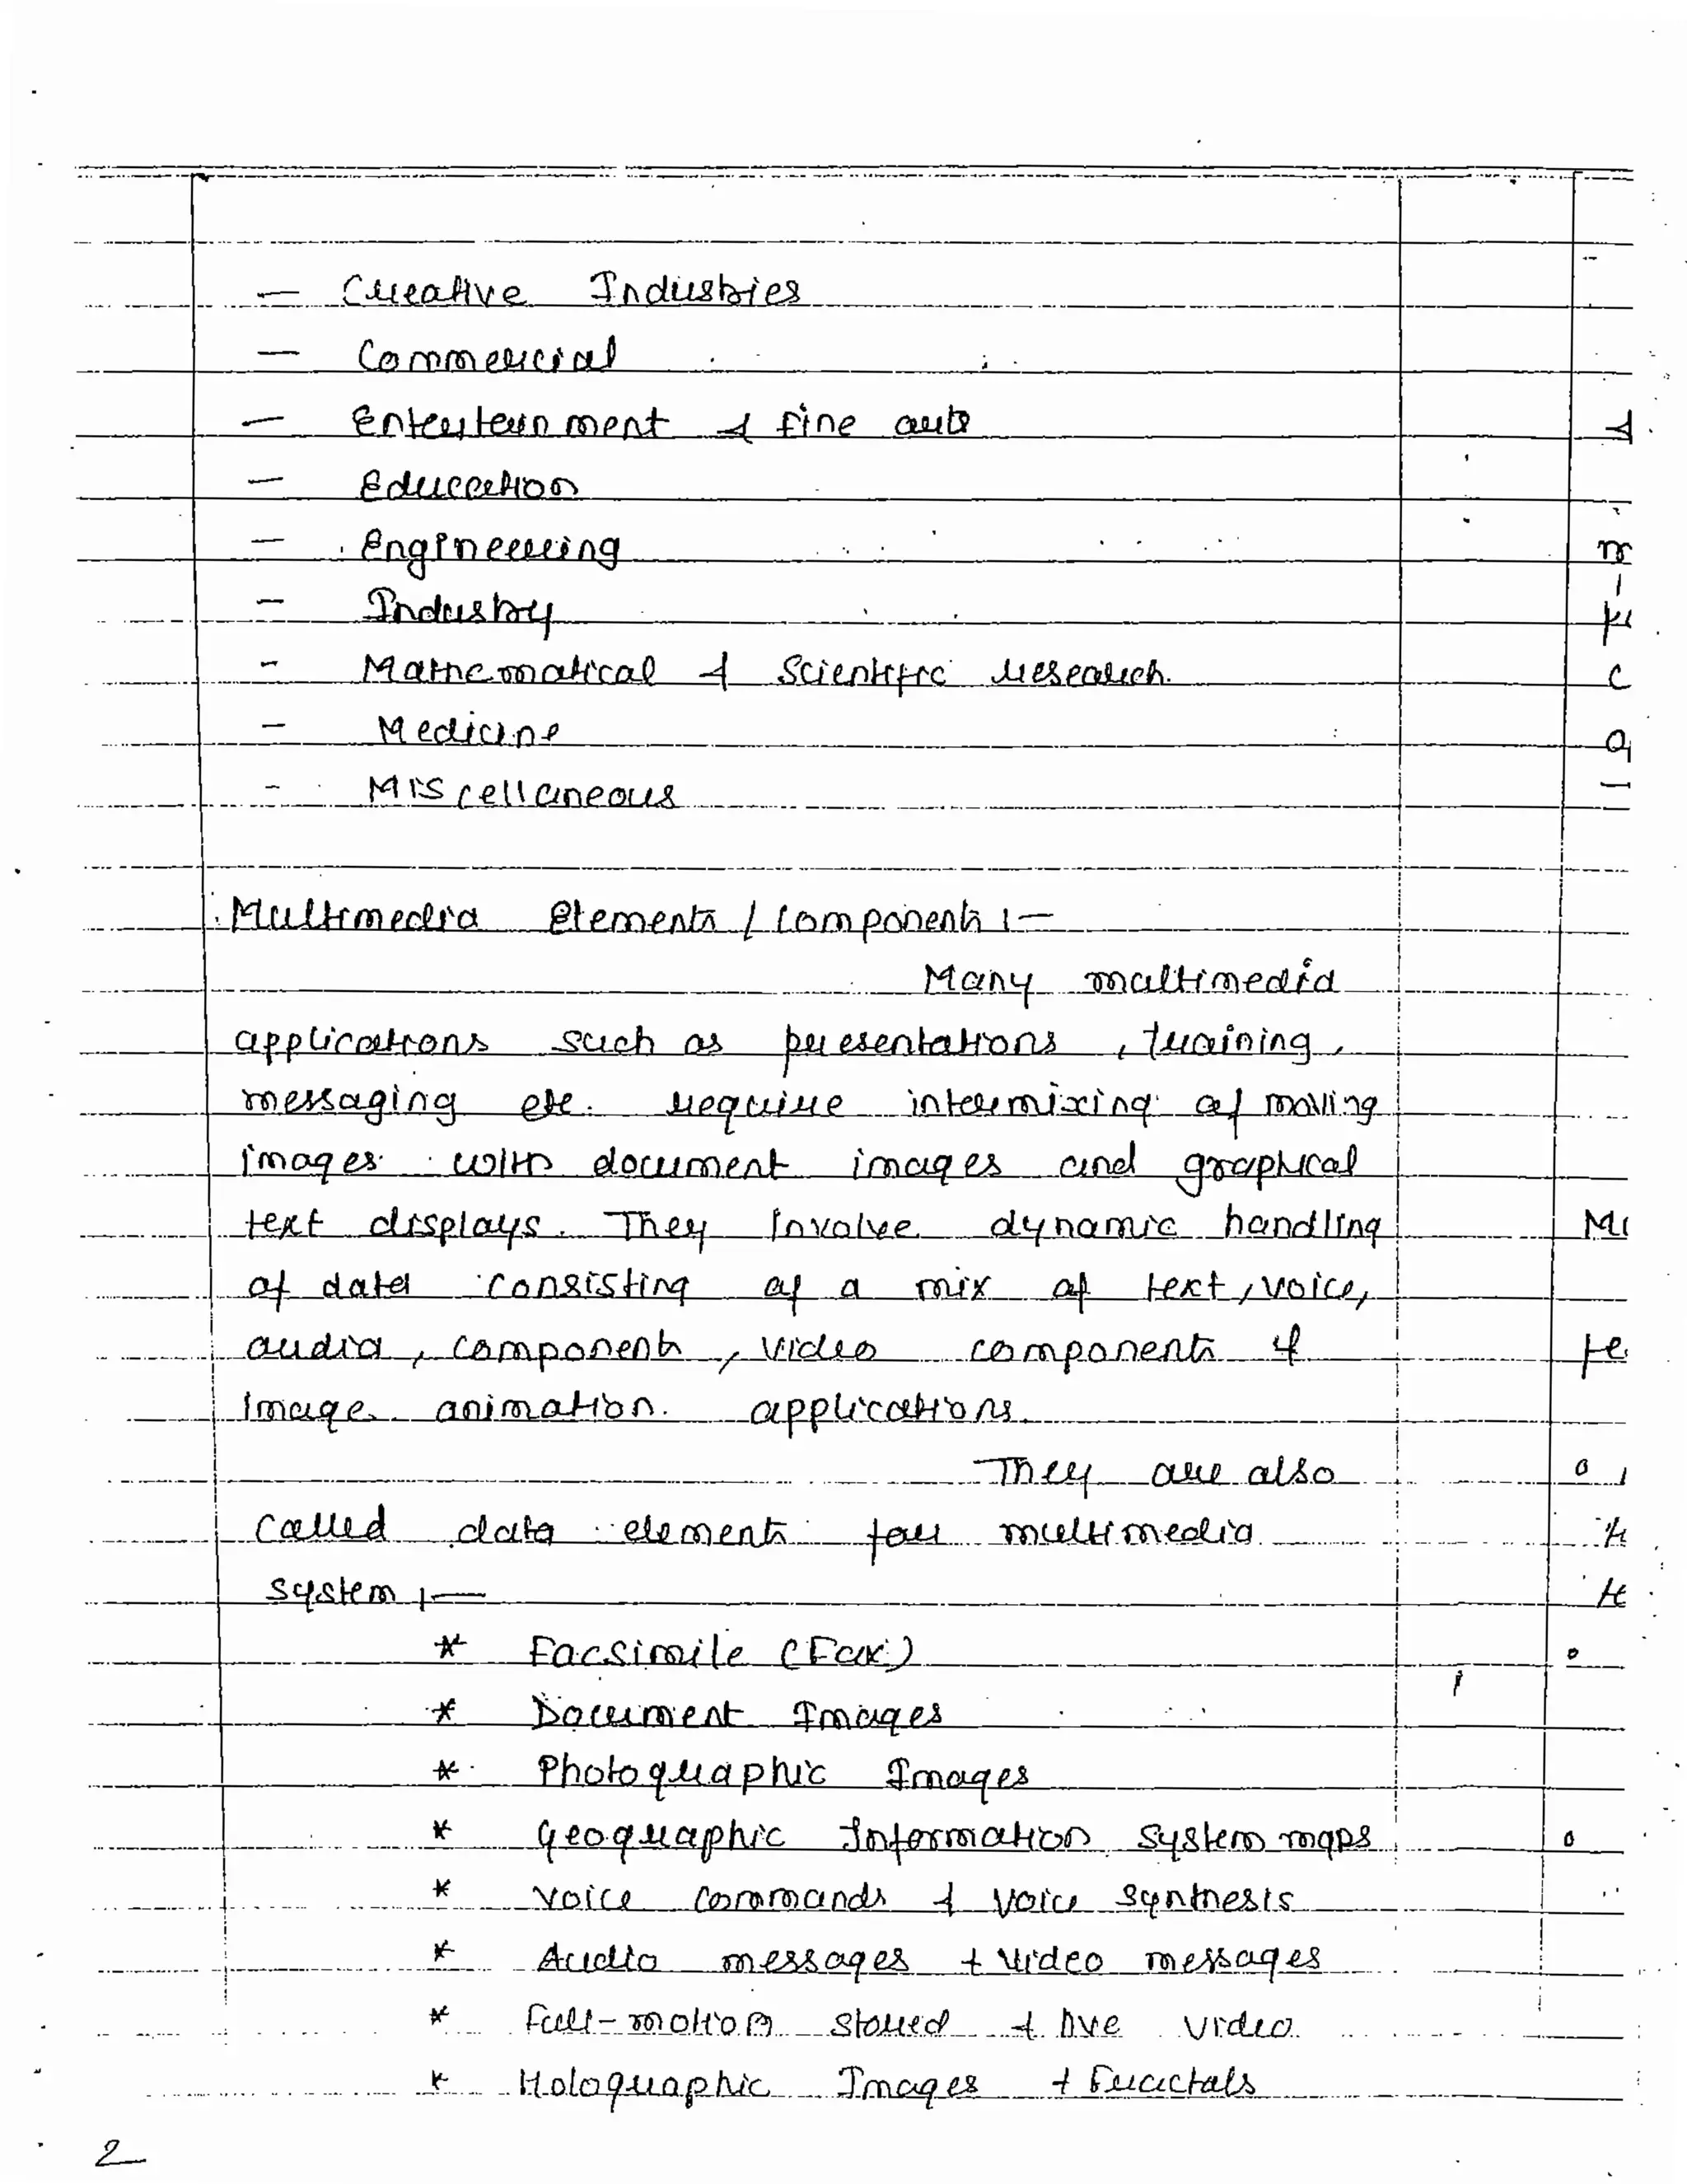 — Creative Industries
— Commercial
— Entertainment & fine arts
— Education
— Engineering
— Industry
— Mathematical & Scientific research.
— Medicine
— Miscellaneous
Multimedia Elements / Components :—
Many multimedia
applications such as presentations, training,
messaging etc. require intermixing of moving
images with document images and graphical
text displays. They involve dynamic handling
of data consisting of a mix of text, voice,
audio, components, video components &
image animation. applications.
They are also
called data elements for multimedia
system :—
* Facsimile (Fax)
* Document Images
* Photographic Images
* Geographic Information System maps
* Voice Commands & Voice Synthesis
* Audio messages & Video messages
* Full-motion stored & live video.
* Holographic Images & Fractals
2